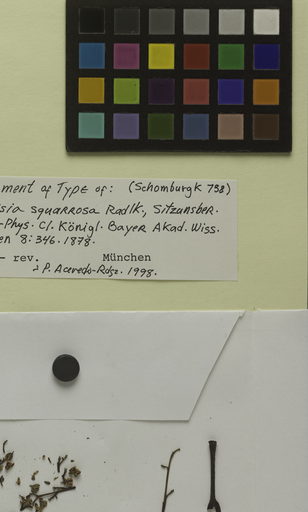 ment of Type of: (Schomburgk 758)
sia squarrosa Radlk., Sitzunsber.
-Phys. Cl. Königl. Bayer Akad. Wiss.
en 8:346. 1878.
- rev. München
P. Acevedo-Rdgz. 1998.